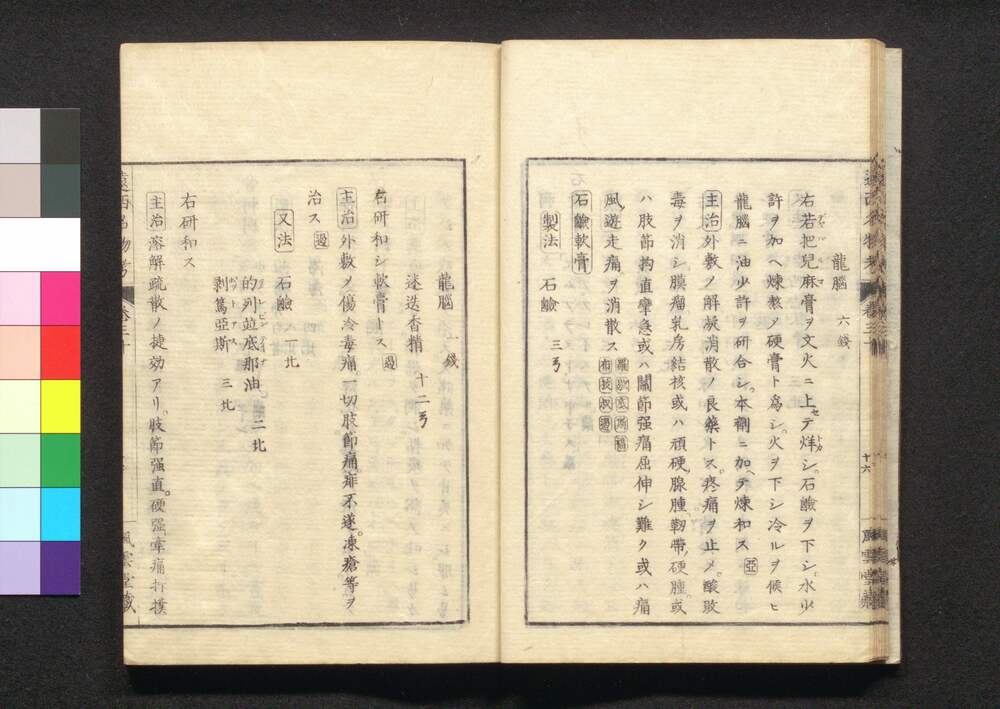 龍腦 六錢
右若把兒麻膏ヲ文火ニ上セテ烊シ石鹼ヲ下シ水少
許ヲ加ヘ煉熬ノ硬膏ト爲シ火ヲ下シ冷ルヲ候ヒ
龍腦ニ油少許ヲ研合シ本劑ニ加ヘテ煉和ス 亞
主治 外敷ノ解凝消散ノ良藥トス疼痛ヲ止メ酸敗
毒ヲ消シ膜瘤乳房結核或ハ頑硬腺腫韌帶硬腫或
ハ肢節拘直攣急或ハ關節强痛屈伸シ難ク或ハ痛
風遊走痛ヲ消散ス
石鹼軟膏
製法 石鹼 三ヲ
龍腦 錢
迷迭香精 十二ヲ
右研和シ軟膏トス
主治 外敷ノ傷冷毒痛一切肢節痛痱不遂凍瘡等ヲ
治ス
又法 石鹼 八
的列並底那油 二
剥篤亞斯 三
右研和ス
主治 溶解疏散ノ捷効アリ肢節强直硬强牽痛打撲
遠西名物考 卷三十
風雲堂藏
十六